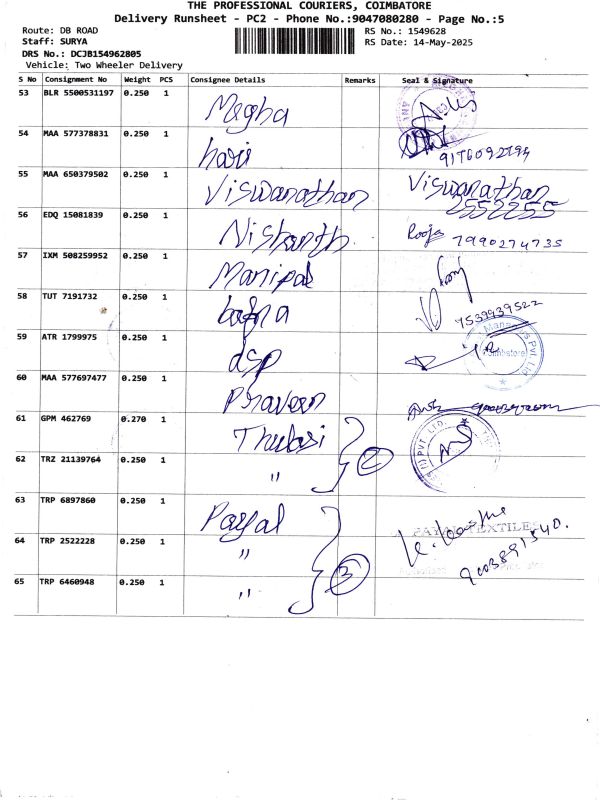 THE PROFESSIONAL COURIERS, COIMBATORE
Delivery Runsheet - PC2 - Phone No.:9047080280 - Page No.:5
Route: DB ROAD RS No.: 1549628
Staff: SURYA RS Date: 14-May-2025
DRS No.: DCJB154962805
Vehicle: Two Wheeler Delivery
S No Consignment No Weight PCS Consignee Details Remarks Seal & Signature
53 BLR 5500531197 0.250 1 Megha
54 MAA 577378831 0.250 1 hari
55 MAA 650379502 0.250 1 Viswanathan Viswanathan
2552255
56 EDQ 15081839 0.250 1 Nishanth Rooja 7990274735
57 IXM 508259952 0.250 1 Manipal
58 TUT 7191732 0.250 1 bafna 7539939522
59 ATR 1799975 0.250 1 dsp
60 MAA 577697477 0.250 1 Praveen
61 GPM 462769 0.270 1 Thulasi
62 TRZ 21139764 0.250 1 " 2
63 TRP 6897860 0.250 1 Payal PAYAL TEXTILES
64 TRP 2522228 0.250 1 " 3 9003891540.
65 TRP 6460948 0.250 1 "